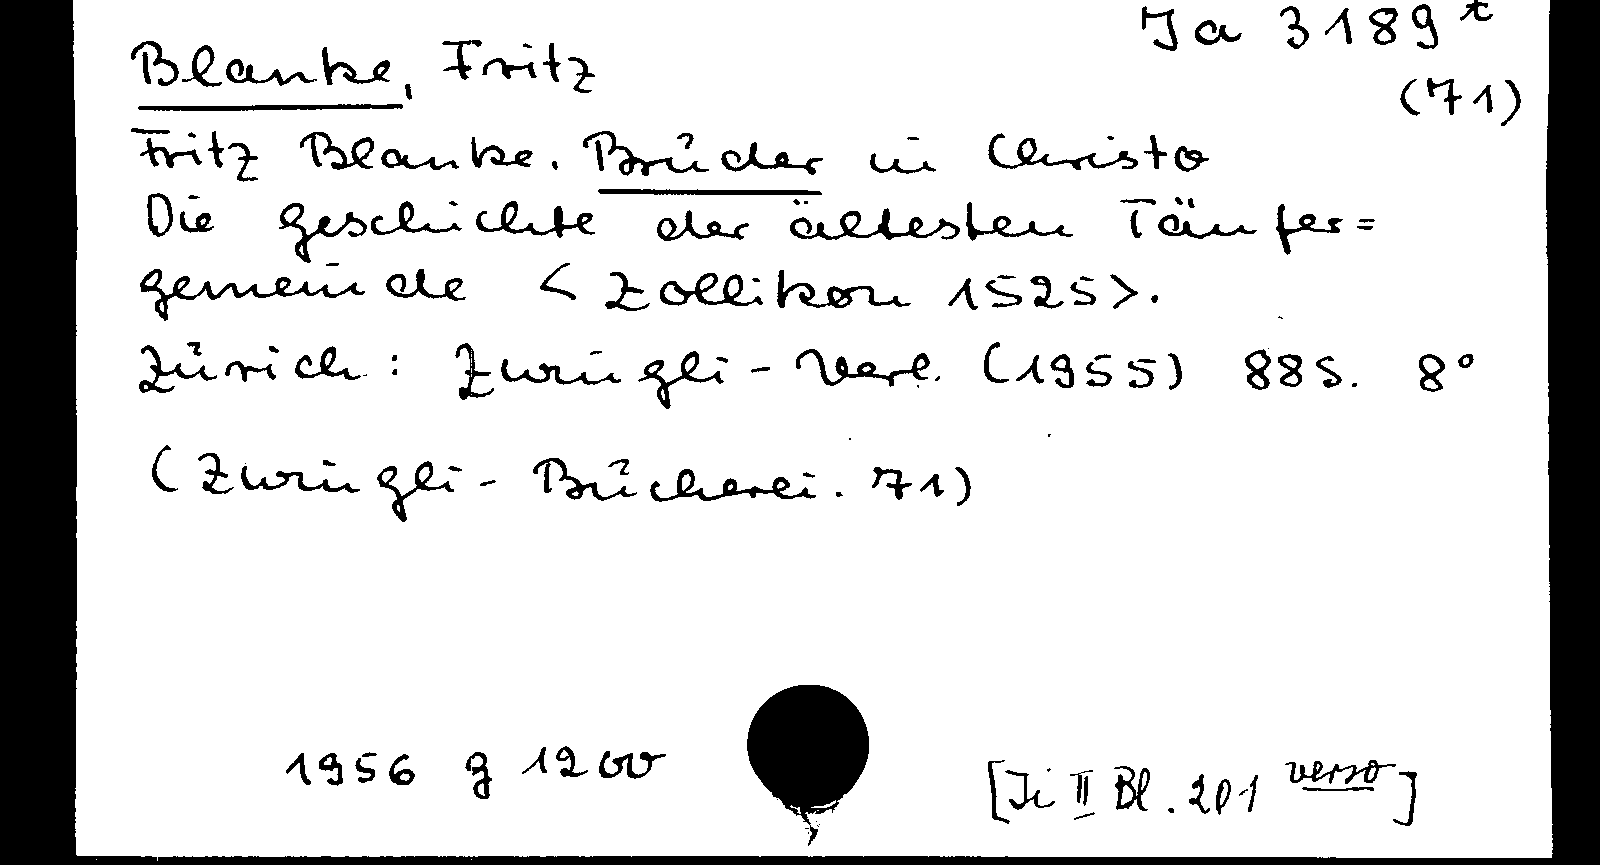 Ja 3189 t
Blanke, Fritz
(71)
Fritz Blanke. Brüder in Christo
Die Geschichte der ältesten Täufer=
gemeinde <Zollikon 1525>.
Zürich: Zwingli-Verl. (1955) 88 S. 8°
(Zwingli-Bücherei. 71)
1956 g 1200
[Ji II Bl. 201 verso]